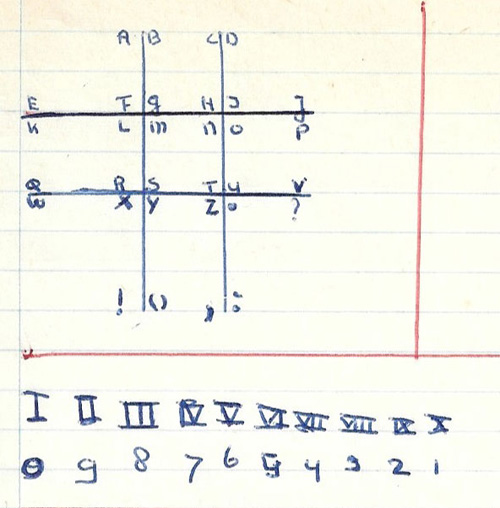 A B C D
E F g H I J
K L m n o P
Q R S T U V
W X Y Z . ?
! () , :
I II III IV V VI VII VIII IX X
0 9 8 7 6 5 4 3 2 1